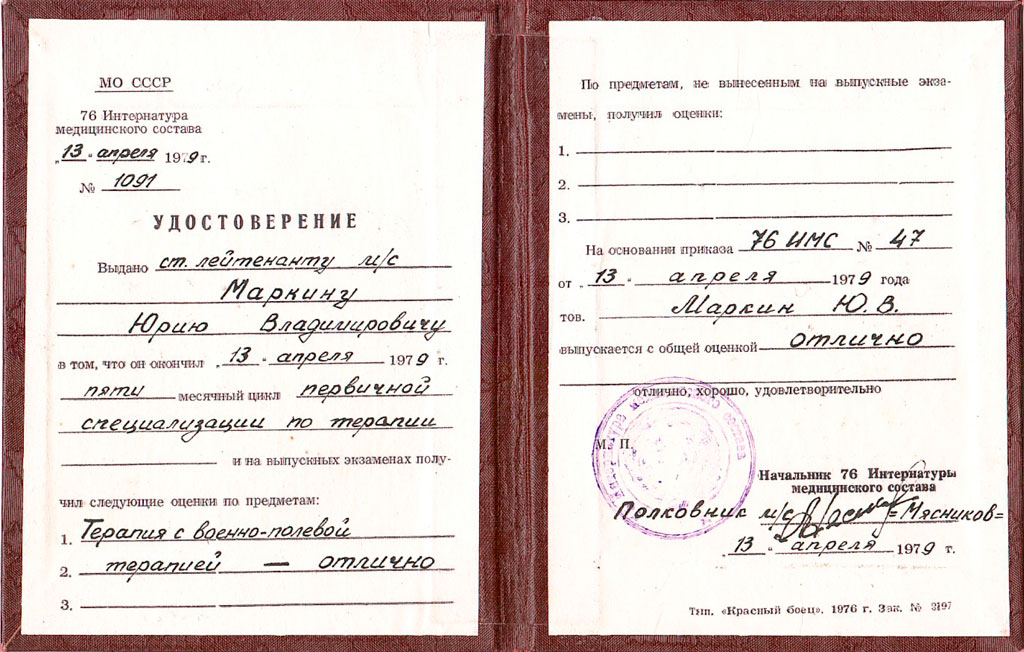 МО СССР
76 Интернатура
медицинского состава
„13" апреля 1979 г.
№ 1091
УДОСТОВЕРЕНИЕ
Выдано ст. лейтенанту м/с
Маркину
Юрию Владимировичу
в том, что он окончил „13" апреля 1979 г.
пяти месячный цикл первичной
специализации по терапии
и на выпускных экзаменах полу-
чил следующие оценки по предметам:
1. Терапия с военно-полевой
2. терапией — отлично
3.
По предметам, не вынесенным на выпускные экза-
мены, получил оценки:
1.
2.
3.
На основании приказа 76 ИМС № 47
от „13" апреля 1979 года
тов. Маркин Ю. В.
выпускается с общей оценкой отлично
отлично, хорошо, удовлетворительно
М. П.
Начальник 76 Интернатуры
медицинского состава
Полковник м/с =Мясников=
„13" апреля 1979 г.
Тип. «Красный боец». 1976 г. Зак. № 3197